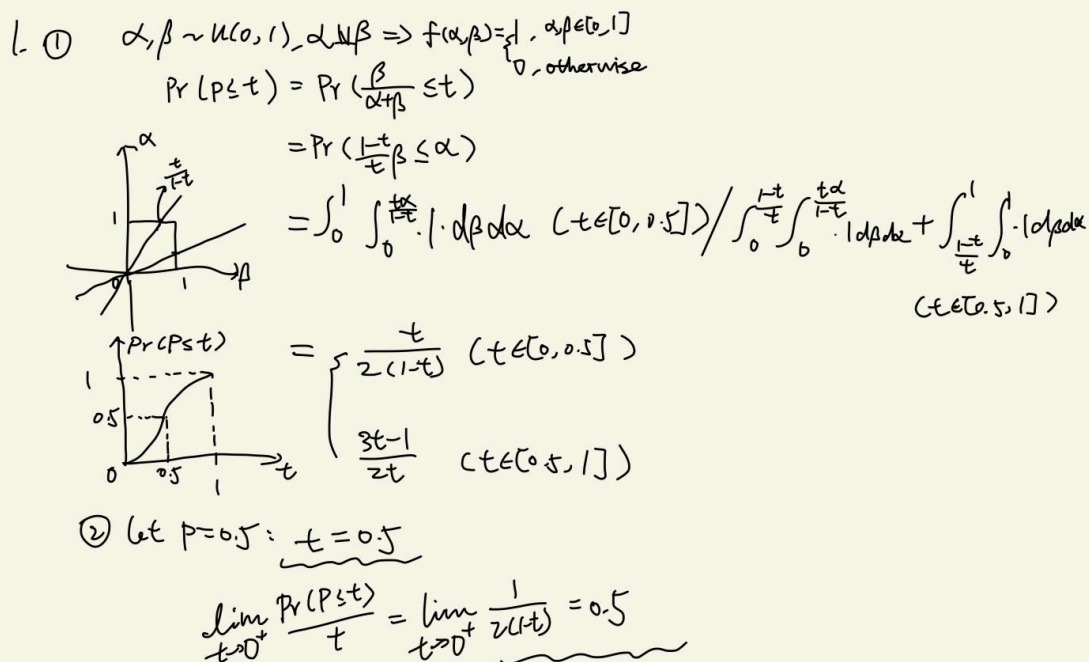 1. ① α,β ~ U(0,1), α⫫β => f(α,β)={1, α,β∈[0,1]
0, otherwise
Pr(P≤t) = Pr(β/(α+β) ≤t)
=Pr((1-t)/t β ≤ α)
=∫₀¹ ∫₀^(tα/(1-t)) ·1·dβdα (t∈[0,0.5]) / ∫₀^((1-t)/t) ∫₀^(tα/(1-t)) ·1dβdα + ∫_((1-t)/t)^1 ∫₀¹ ·1dβdα
(t∈[0.5,1])
α
t/(1-t)
1
0 1 β
= { t/(2(1-t)) (t∈[0,0.5])
(3t-1)/(2t) (t∈[0.5,1])
Pr(P≤t)
1
0.5
0 0.5 1 t
② let P=0.5: t=0.5
lim t→0⁺ Pr(P≤t)/t = lim t→0⁺ 1/(2(1-t)) = 0.5